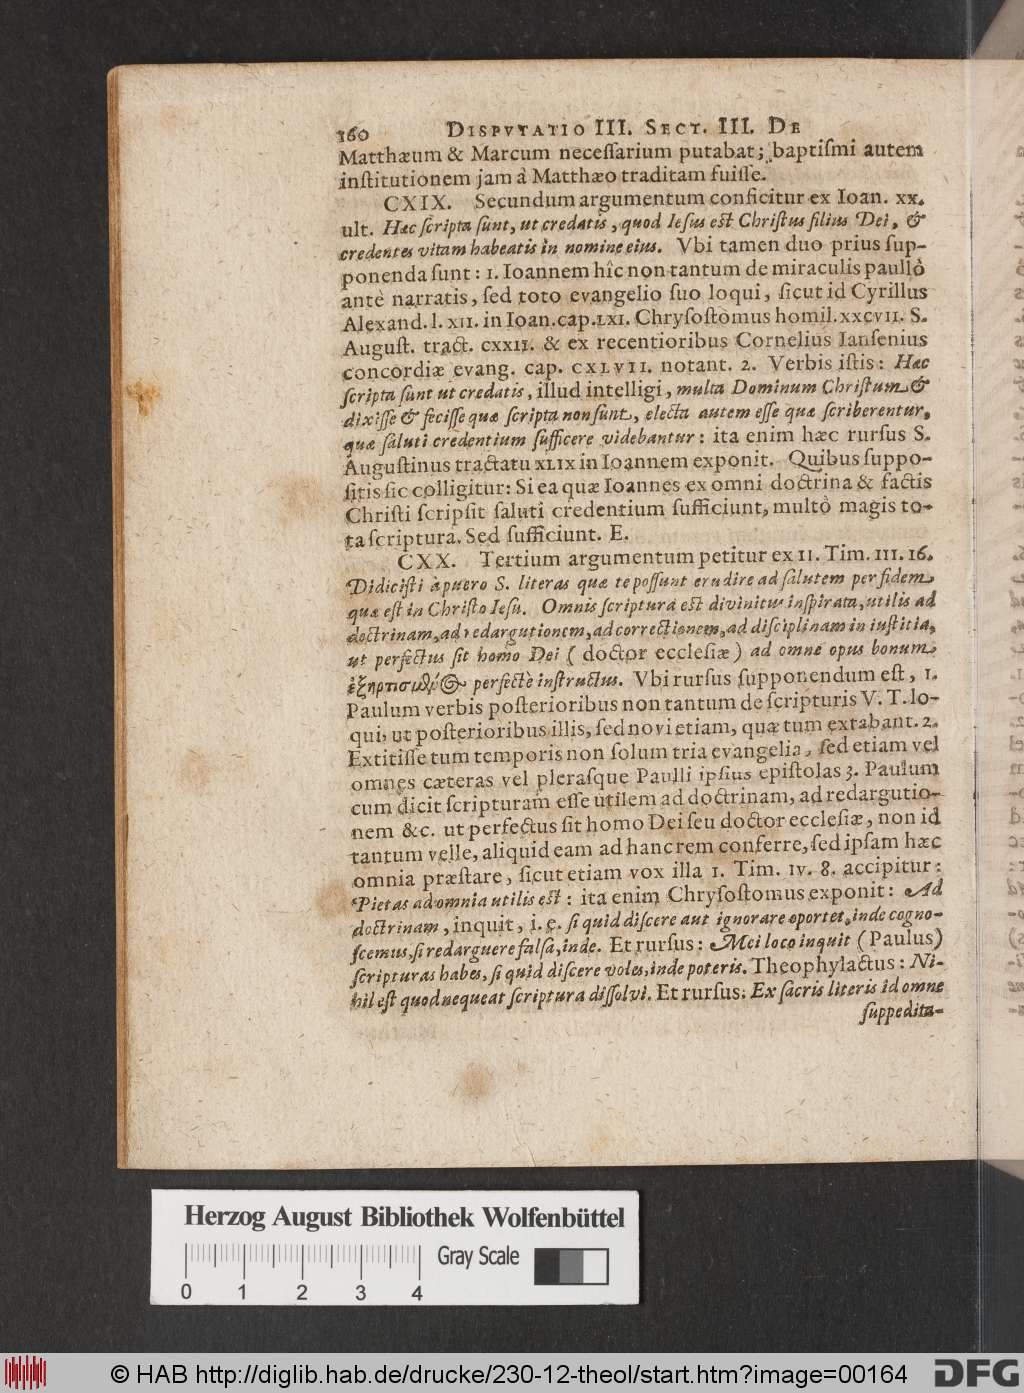 160 DISPVTATIO III. SECT. III. DE
Matthæum & Marcum neceſſarium putabat; baptiſmi autem
inſtitutionem jam à Matthæo traditam fuiſſe.
CXIX. Secundum argumentum conficitur ex Ioan. XX.
ult. Hæc ſcripta ſunt, ut credatis, quod Ieſus eſt Chriſtus filius Dei, &
credentes vitam habeatis in nomine eius. Vbi tamen duo prius ſup-
ponenda ſunt: 1. Ioannem hîc non tantum de miraculis paullò
antè narratis, ſed toto evangelio ſuo loqui, ſicut id Cyrillus
Alexand. l. XII. in Ioan. cap. LXI. Chryſoſtomus homil. XXCVII. S.
Auguſt. tract. CXXII. & ex recentioribus Cornelius Ianſenius
concordiæ evang. cap. CXLVII. notant. 2. Verbis iſtis: Hæc
ſcripta ſunt ut credatis, illud intelligi, multa Dominum Chriſtum &
dixiſſe & feciſſe quæ ſcripta non ſunt, electa autem eſſe quæ ſcriberentur,
quæ ſaluti credentium ſufficere videbantur: ita enim hæc rurſus S.
Auguſtinus tractatu XLIX in Ioannem exponit. Quibus ſuppo-
ſitis ſic colligitur: Si ea quæ Ioannes ex omni doctrina & factis
Chriſti ſcripſit ſaluti credentium ſufficiunt, multò magis to-
ta ſcriptura. Sed ſufficiunt. E.
CXX. Tertium argumentum petitur ex II. Tim. III. 16.
Didiciſti à puero S. literas quæ te poſſunt erudire ad ſalutem per fidem
quæ eſt in Chriſto Ieſu. Omnis ſcriptura eſt divinitus inſpirata, utilis ad
doctrinam, ad redargutionem, ad correctionem, ad diſciplinam in iuſtitia,
ut perfectus ſit homo Dei ( doctor eccleſiæ ) ad omne opus bonum
ἐξηρτισμένος perfectè inſtructus. Vbi rurſus ſupponendum eſt, 1.
Paulum verbis poſterioribus non tantum de ſcripturis V. T. lo-
qui, ut poſterioribus illis, ſed novi etiam, quæ tum extabant. 2.
Extitiſſe tum temporis non ſolum tria evangelia, ſed etiam vel
omnes cæteras vel pleraſque Paulli ipſius epiſtolas 3. Paulum
cum dicit ſcripturam eſſe utilem ad doctrinam, ad redargutio-
nem &c. ut perfectus ſit homo Dei ſeu doctor eccleſiæ, non id
tantum velle, aliquid eam ad hanc rem conferre, ſed ipſam hæc
omnia præſtare, ſicut etiam vox illa 1. Tim. IV. 8. accipitur:
Pietas ad omnia utilis eſt: ita enim Chryſoſtomus exponit: Ad
doctrinam, inquit, i. e. ſi quid diſcere aut ignorare oportet, inde cogno-
ſcemus, ſi redarguere falſa, inde. Et rurſus: Mei loco inquit (Paulus)
ſcripturas habes, ſi quid diſcere voles, inde poteris. Theophylactus: Ni-
hil eſt quod nequeat ſcriptura diſſolvi. Et rurſus: Ex ſacris literis id omne
ſuppedita-
Herzog August Bibliothek Wolfenbüttel
Gray Scale
0 1 2 3 4
© HAB http://diglib.hab.de/drucke/230-12-theol/start.htm?image=00164
DFG